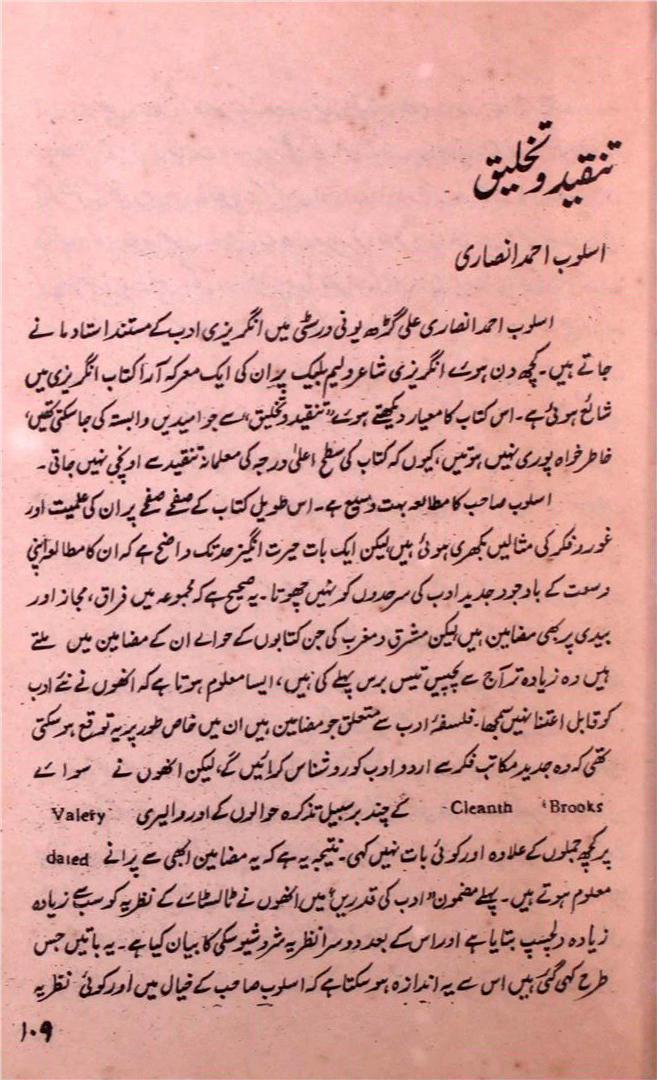 تنقید و تخلیق
اسلوب احمد انصاری
اسلوب احمد انصاری علی گڑھ یونی ورسٹی میں انگریزی ادب کے مستند استاد مانے
جاتے ہیں۔ کچھ دن ہوئے انگریزی شاعر ولیم بلیک پر ان کی ایک معرکہ آرا کتاب انگریزی میں
شائع ہوئی ہے۔ اس کتاب کا معیار دیکھتے ہوئے "تنقید و تخلیق" سے جو امیدیں وابستہ کی جا سکتی تھیں
خاطر خواہ پوری نہیں ہوتیں، کیوں کہ کتاب کی سطح اعلیٰ درجہ کی معلمانہ تنقید سے اونچی نہیں جاتی۔
اسلوب صاحب کا مطالعہ بہت وسیع ہے۔ اس طویل کتاب کے صفحے صفحے پر ان کی علمیت اور
غور و فکر کی مثالیں بکھری ہوئی ہیں لیکن ایک بات حیرت انگیز حد تک واضح ہے کہ ان کا مطالعہ اپنی
وسعت کے باوجود جدید ادب کی سرحدوں کو نہیں چھوتا۔ یہ صحیح ہے کہ مجموعہ میں فراق، مجاز اور
بیدی پر بھی مضامین ہیں لیکن مشرق و مغرب کی جن کتابوں کے حوالے ان کے مضامین میں ملتے
ہیں وہ زیادہ تر آج سے پچیس تیس برس پہلے کی ہیں، ایسا معلوم ہوتا ہے کہ انھوں نے نئے ادب
کو قابل اعتنا نہیں سمجھا۔ فلسفۂ ادب سے متعلق جو مضامین ہیں ان میں خاص طور پر یہ توقع ہو سکتی
تھی کہ وہ جدید مکاتب فکر سے اردو ادب کو روشناس کرائیں گے، لیکن انھوں نے سوائے
Cleanth Brooks کے چند بر سبیل تذکرہ حوالوں کے اور والیری Valery
پر کچھ جملوں کے علاوہ اور کوئی بات نہیں کہی۔ نتیجہ یہ ہے کہ یہ مضامین ابھی سے پرانے dated
معلوم ہوتے ہیں۔ پہلے مضمون "ادب کی قدریں" میں انھوں نے ٹالسٹائے کے نظریہ کو سب سے زیادہ
زیادہ دلچسپ بتایا ہے اور اس کے بعد دوسرا نظریہ شرنوشیوسکی کا بیان کیا ہے۔ یہ باتیں جس
طرح کہی گئی ہیں اس سے یہ اندازہ ہو سکتا ہے کہ اسلوب صاحب کے خیال میں اور کوئی نظریہ
۱۰۹